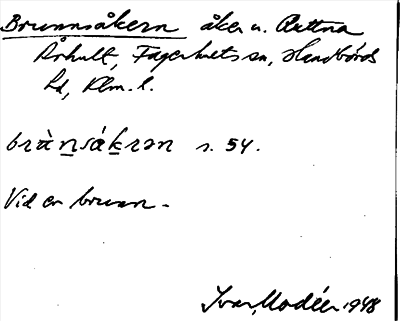 Brunnsåkern åker u. Rettna
Århult, Fagerhults sn, Handbörds
hd, Klm. l.
brànsákrən s. 54.
Vid en brunn.
Ivar Modéer 1948